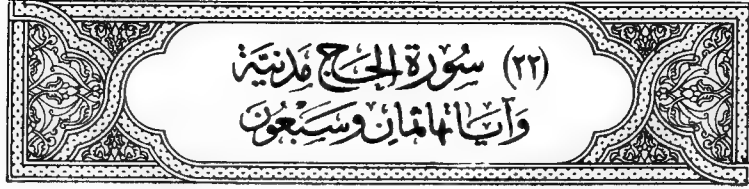 (٢٢) سُورَة الحَاج مَدَنيَّة
وَآيَاتهَا ثمَان وَسَبْعُون